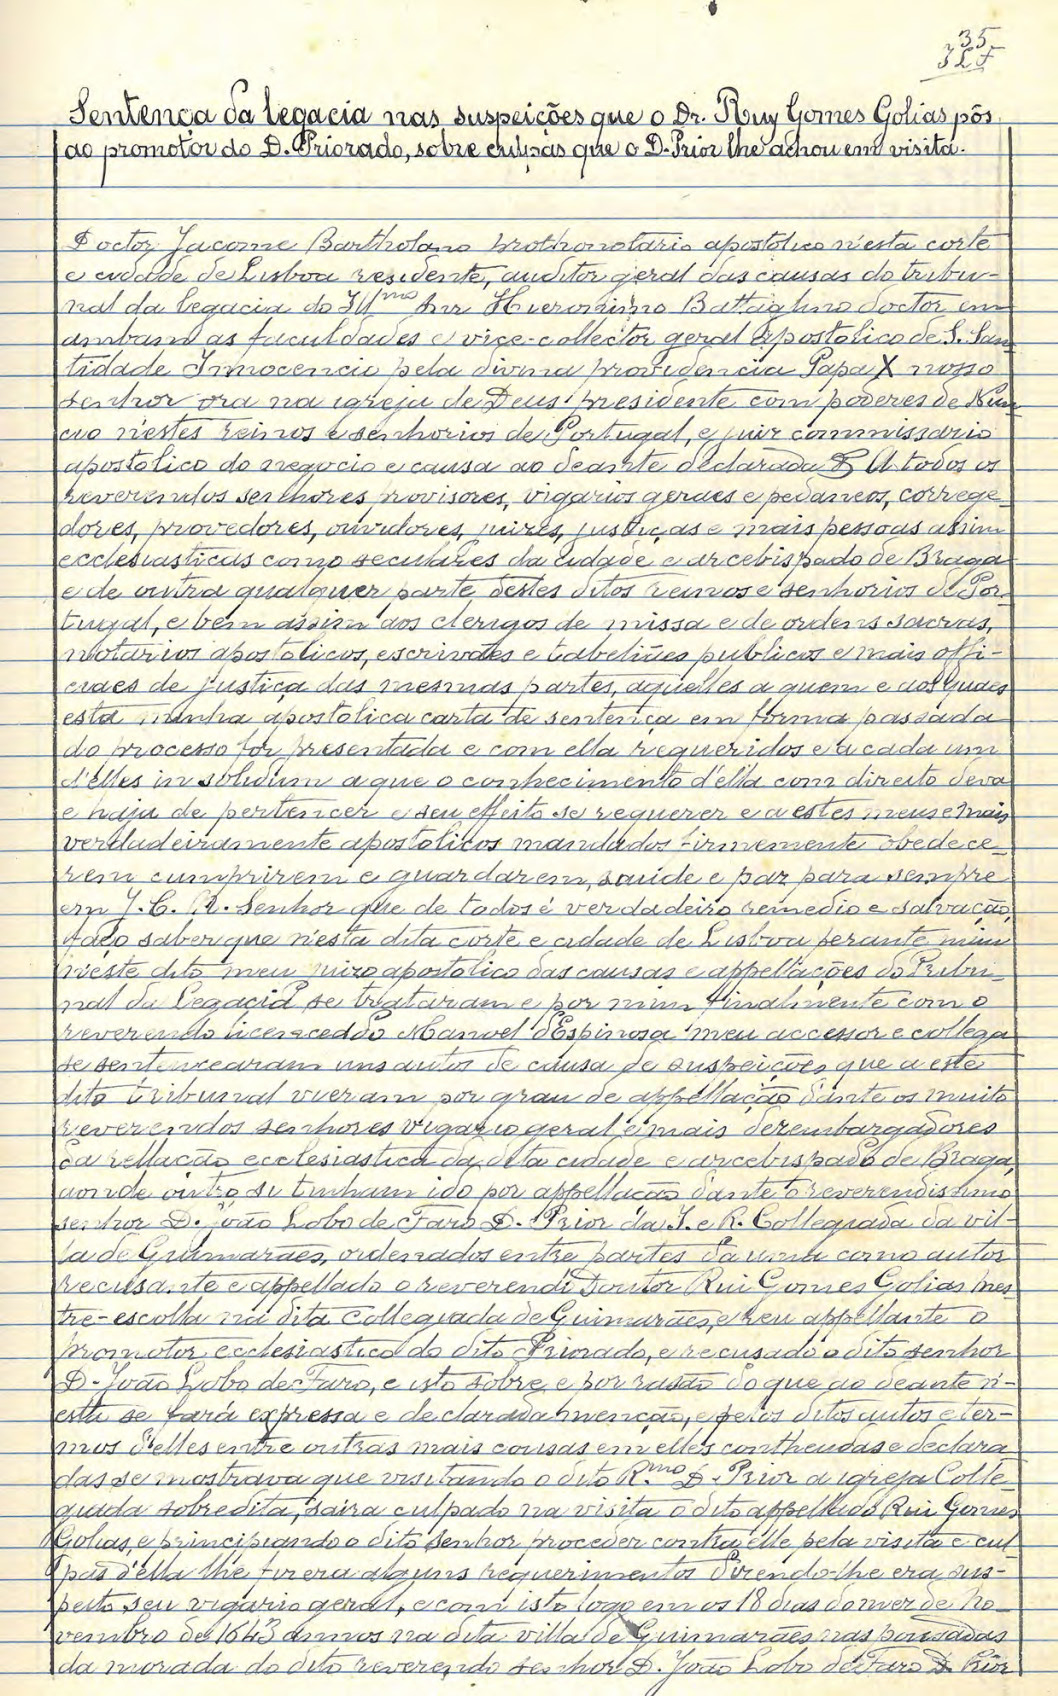 35
Sentença da legacia nas suspeições que o Dr. Ruy Gomes Golias pôs
ao promotor do D. Priorado, sobre culpas que o D. Prior lhe achou em visita.
Doctor Jacome Bartholano prothonotario apostolico n'esta corte
e cidade de Lisboa residente, auditor geral das causas do tribu-
nal da legacia do Ill.mo Snr Hieronimo Battaglino doctor em
ambam as faculdades e vice-collector geral apostolico de S. San-
tidade Innocencio pela divina providencia Papa X nosso
senhor ora na igreja de Deus presidente com poderes de Nun
cio n'estes reinos e senhorios de Portugal, e juiz commissario
apostolico do negocio e causa ao deante declarada & A todos os
reverendos senhores provisores, vigarios geraes e pedaneos, correge-
dores, provedores, ouvidores, juizes, justiças e mais pessoas assim
ecclesiasticas como seculares da cidade e arcebispado de Braga
e de outra qualquer parte destes ditos reinos e senhorios de Por-
tugal, e bem assim aos clerigos de missa e de ordens sacras,
notarios apostolicos, escrivães e tabeliães publicos e mais offi-
ciaes de justiça das mesmas partes, aquelles a quem e aos quaes
esta minha apostolica carta de sentença em forma passada
do processo for presentada e com ella requeridos e a cada um
d'elles in solidum a que o conhecimento d'ella com direito deva
e haja de pertencer e seu effeito se requerer e a estes meus e mais
verdadeiramente apostolicos mandados firmemente obedece-
rem cumprirem e guardarem, saúde e paz para sempre
em J. C. N. Senhor que de todos é verdadeiro remedio e salvação,
faço saber que n'esta dita corte e cidade de Lisboa perante mim
n'este dito meu juizo apostolico das causas e appellações do Tribu-
nal da Legacia se trataram e por mim finalmente com o
reverendo licenceado Manoel d'Espinosa meu accessor e collega
se sentencearam uns autos de causa de suspeições que a este
dito tribunal vieram por grau de appellação d'ante os muito
reverendos senhores vigario geral e mais dezembargadores
da rellação ecclesiastica da dita cidade e arcebispado de Braga,
aonde outro si tinham ido por appellação d'ante o reverendissimo
senhor D. João Lobo de Faro D. Prior da I. e R. Collegiada da vil-
la de Guimarães, ordenados entre partes da uma como autor
recusante e appellado o reverend. doutor Rui Gomes Golias mes
tre-escolla na dita Collegiada de Guimarães, e reu appellante o
promotor ecclesiastico do dito Priorado, e recusado o dito senhor
D. João Lobo de Faro, e isto sobre e por rasão do que ao deante n'-
esta se fará expressa e declarada menção, e pelos ditos autos e ter-
mos d'elles entre outras mais cousas em elles contheudas e declara
das se mostrava que visitando o dito R.mo D. Prior a igreja Colle-
giada sobredita, saira culpado na visita o dito appellado Rui Gomes
Golias, e principiando o dito senhor proceder contra elle pela visita e cul-
pas d'ella lhe fizera alguns requerimentos dizendo-lhe era sus-
peito seu vigario geral, e com isto logo em os 18 dias do mez de no-
vembro de 1643 annos na dita villa de Guimarães nas pousadas
da morada do dito reverendo senhor D. João Lobo de Faro D. Prior